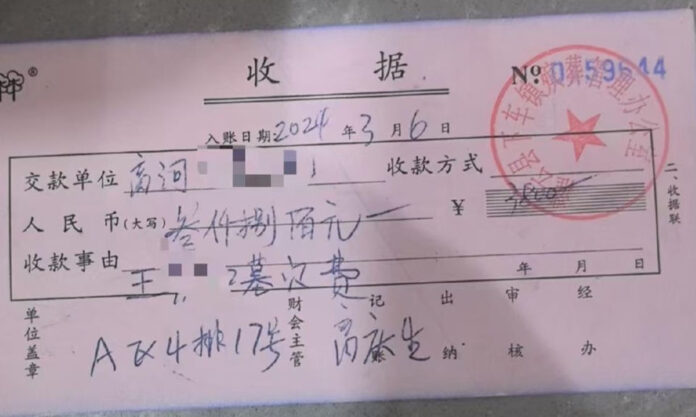 神®
收 据 № 0159644
入账日期 2024 年 3 月 6 日
交款单位 高河 收款方式
人民币(大写) 叁仟捌佰元 ¥ 3800
收款事由 王 墓穴费 年 月 日
单位盖章 A区4排17号 财会主管 记 高 生 出纳 审核 经办
二、收据联
县下车镇殡葬管理办公室